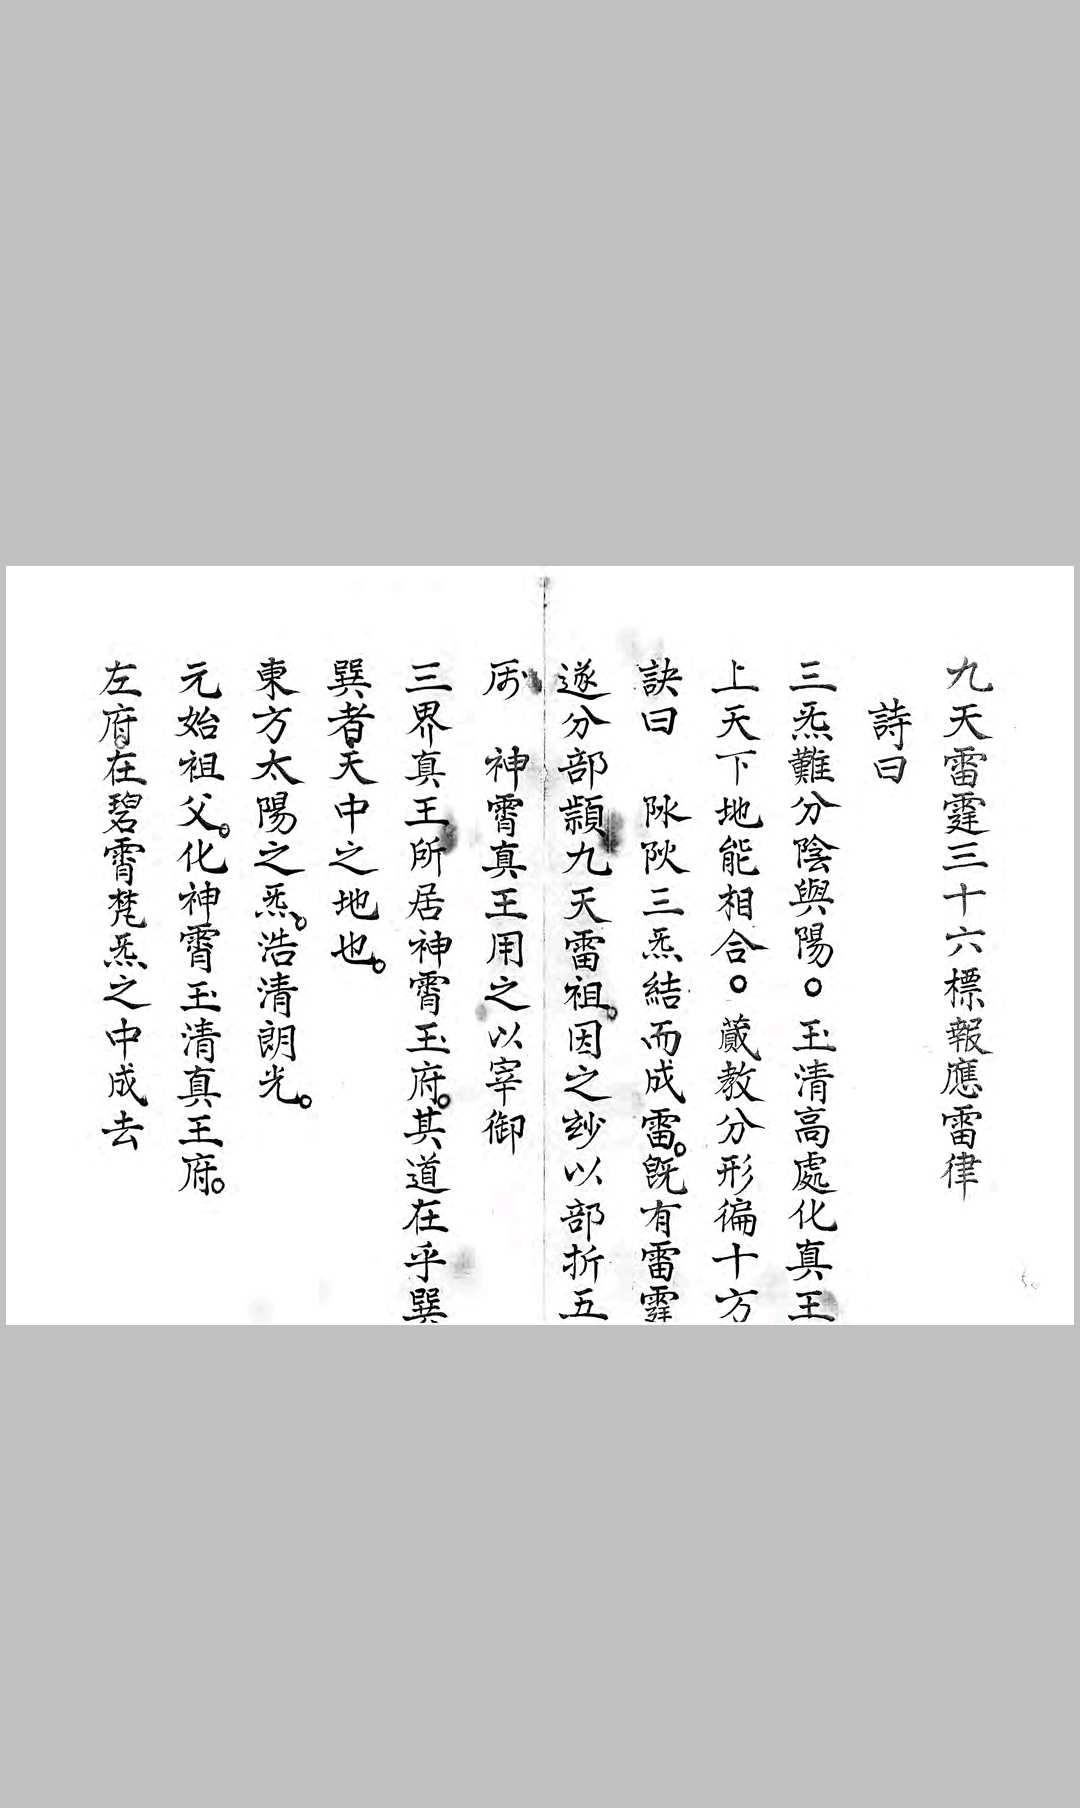 九天雷霆三十六標報應雷律
詩曰
三炁難分陰與陽。玉清高處化真王
上天下地能相合。蕆教分形徧十方
訣曰　阥阦三炁結而成雷。既有雷霆
遂分部顓九天雷祖。因之玅以部折五
屬　神霄真王用之以宰御
三界真王所居神霄玉府。其道在乎巽
巽者天中之地也。
東方太陽之炁。浩清朗光。
元始祖父。化神霄玉清真王府。
左府在碧霄梵炁之中成去